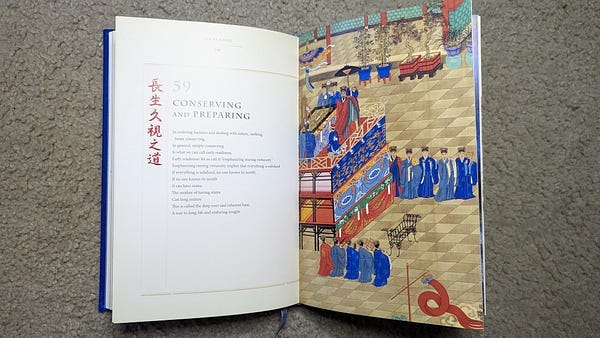 長生久視之道
59
CONSERVING
AND PREPARING
In ordering humans and dealing with nature, nothing
beats conserving.
In general, simply conserving
Is what we can call early readiness.
Early readiness: let us call it "emphasizing storing virtuosity."
Emphasizing storing virtuosity implies that everything is subdued.
If everything is subdued, no one knows its zenith.
If no one knows its zenith
It can have states.
The mother of having states
Can long endure.
This is called the deep root and inherent base,
A way to long life and enduring insight.